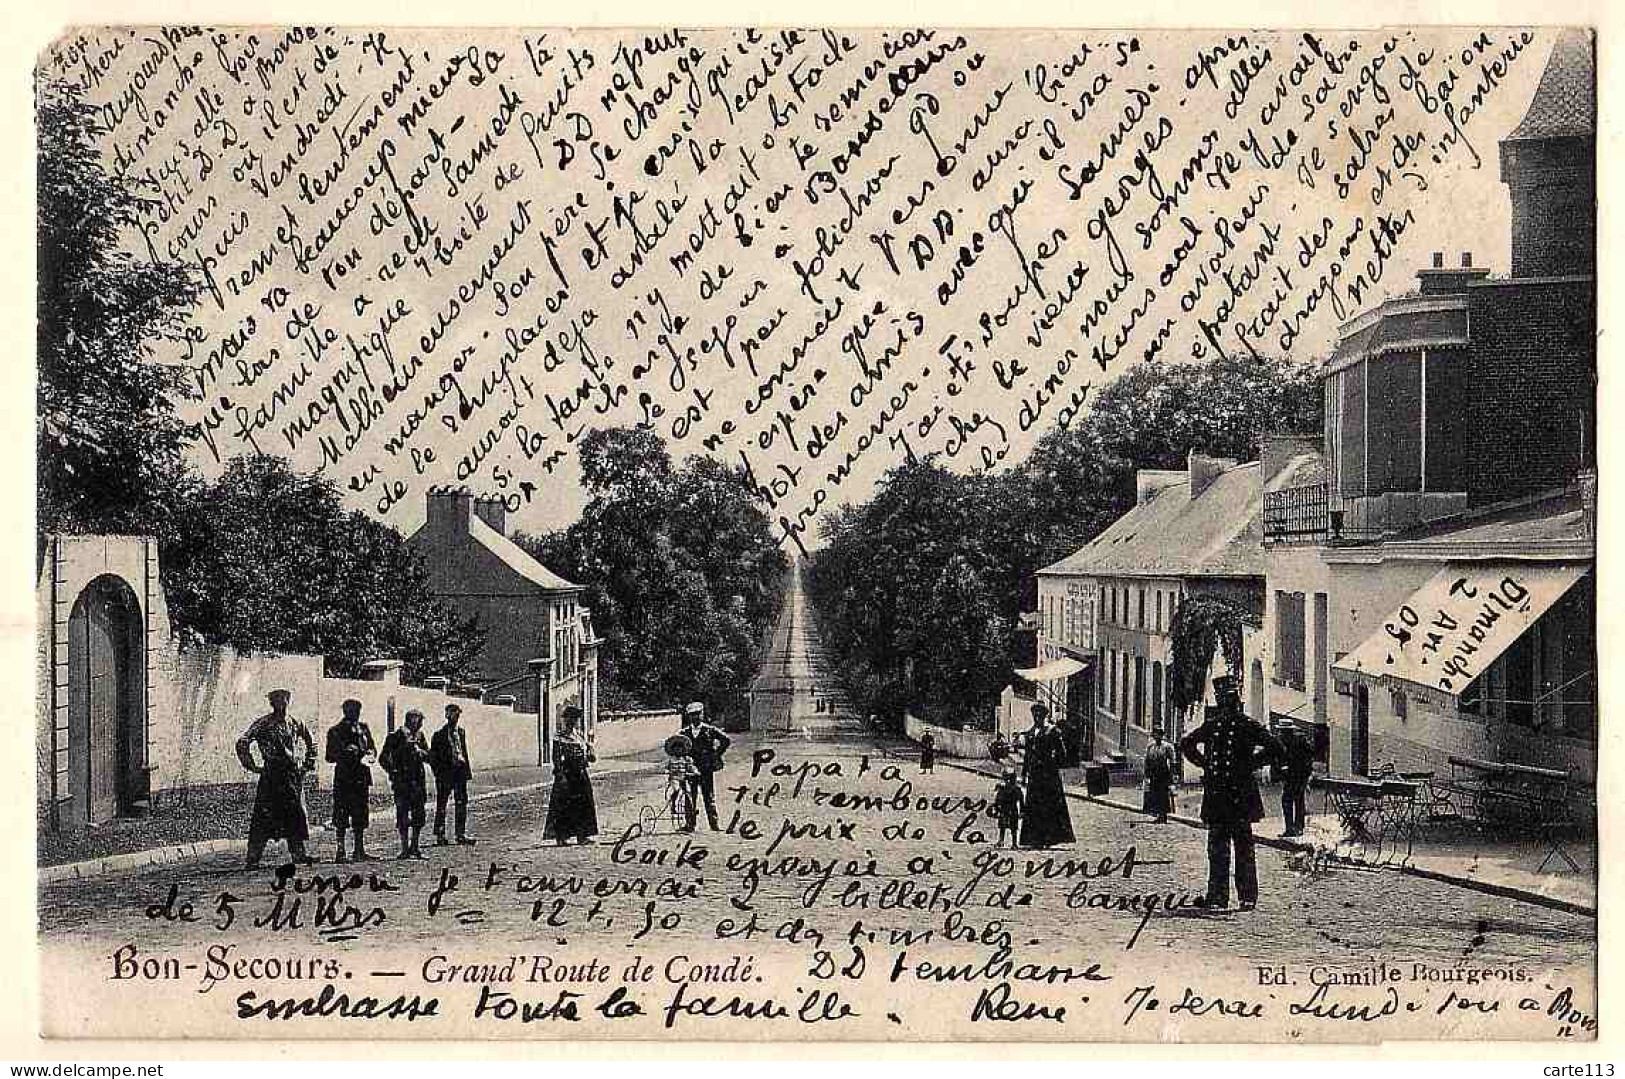 Mon
chéri.
aujourd'hui
dimanche je
suis allé voir
petit D.D à Bonse-
cours où il est de-
puis Vendredi. Il
se remet lentement,
mais va beaucoup mieux
que lors de ton départ - La
famille a reçu Samedi la
magnifique boite de fruits
Malheureusement DD ne peut
en manger. Son père se charge
de le remplacer et je crois qu'il
aurait déjà avalé la caisse
si la tante n'y mettait obstacle
Il m'a chargé de bien te remercier
Le séjour à Bonsecours
est peu folichon qd on
ne connait personne
J'espère que DD. aura bien-
tot des amis avec qui il ira se
promener.
J'ai été souper Samedi
chez le vieux georges - après
le diner nous sommes allés
au Kursaal. Il y avait
un avaleur de sabre
épatant. Il s'engou-
frait des sabres de
dragons et des baïon
nettes d'infanterie
Dimanche
2 Avr.
05.
Papa t'a
t'il remboursé
le prix de la
boite envoyée à Gonnet
Sinon je t'enverrai 2 billets de banque
de 5 MKrs = 12 f. 50 et des timbres.
Bon-Secours. — Grand'Route de Condé.
DD t'embrasse
Ed. Camille Bourgeois.
embrasse toute la famille. René Je serai Lundi son à Bon
carte113